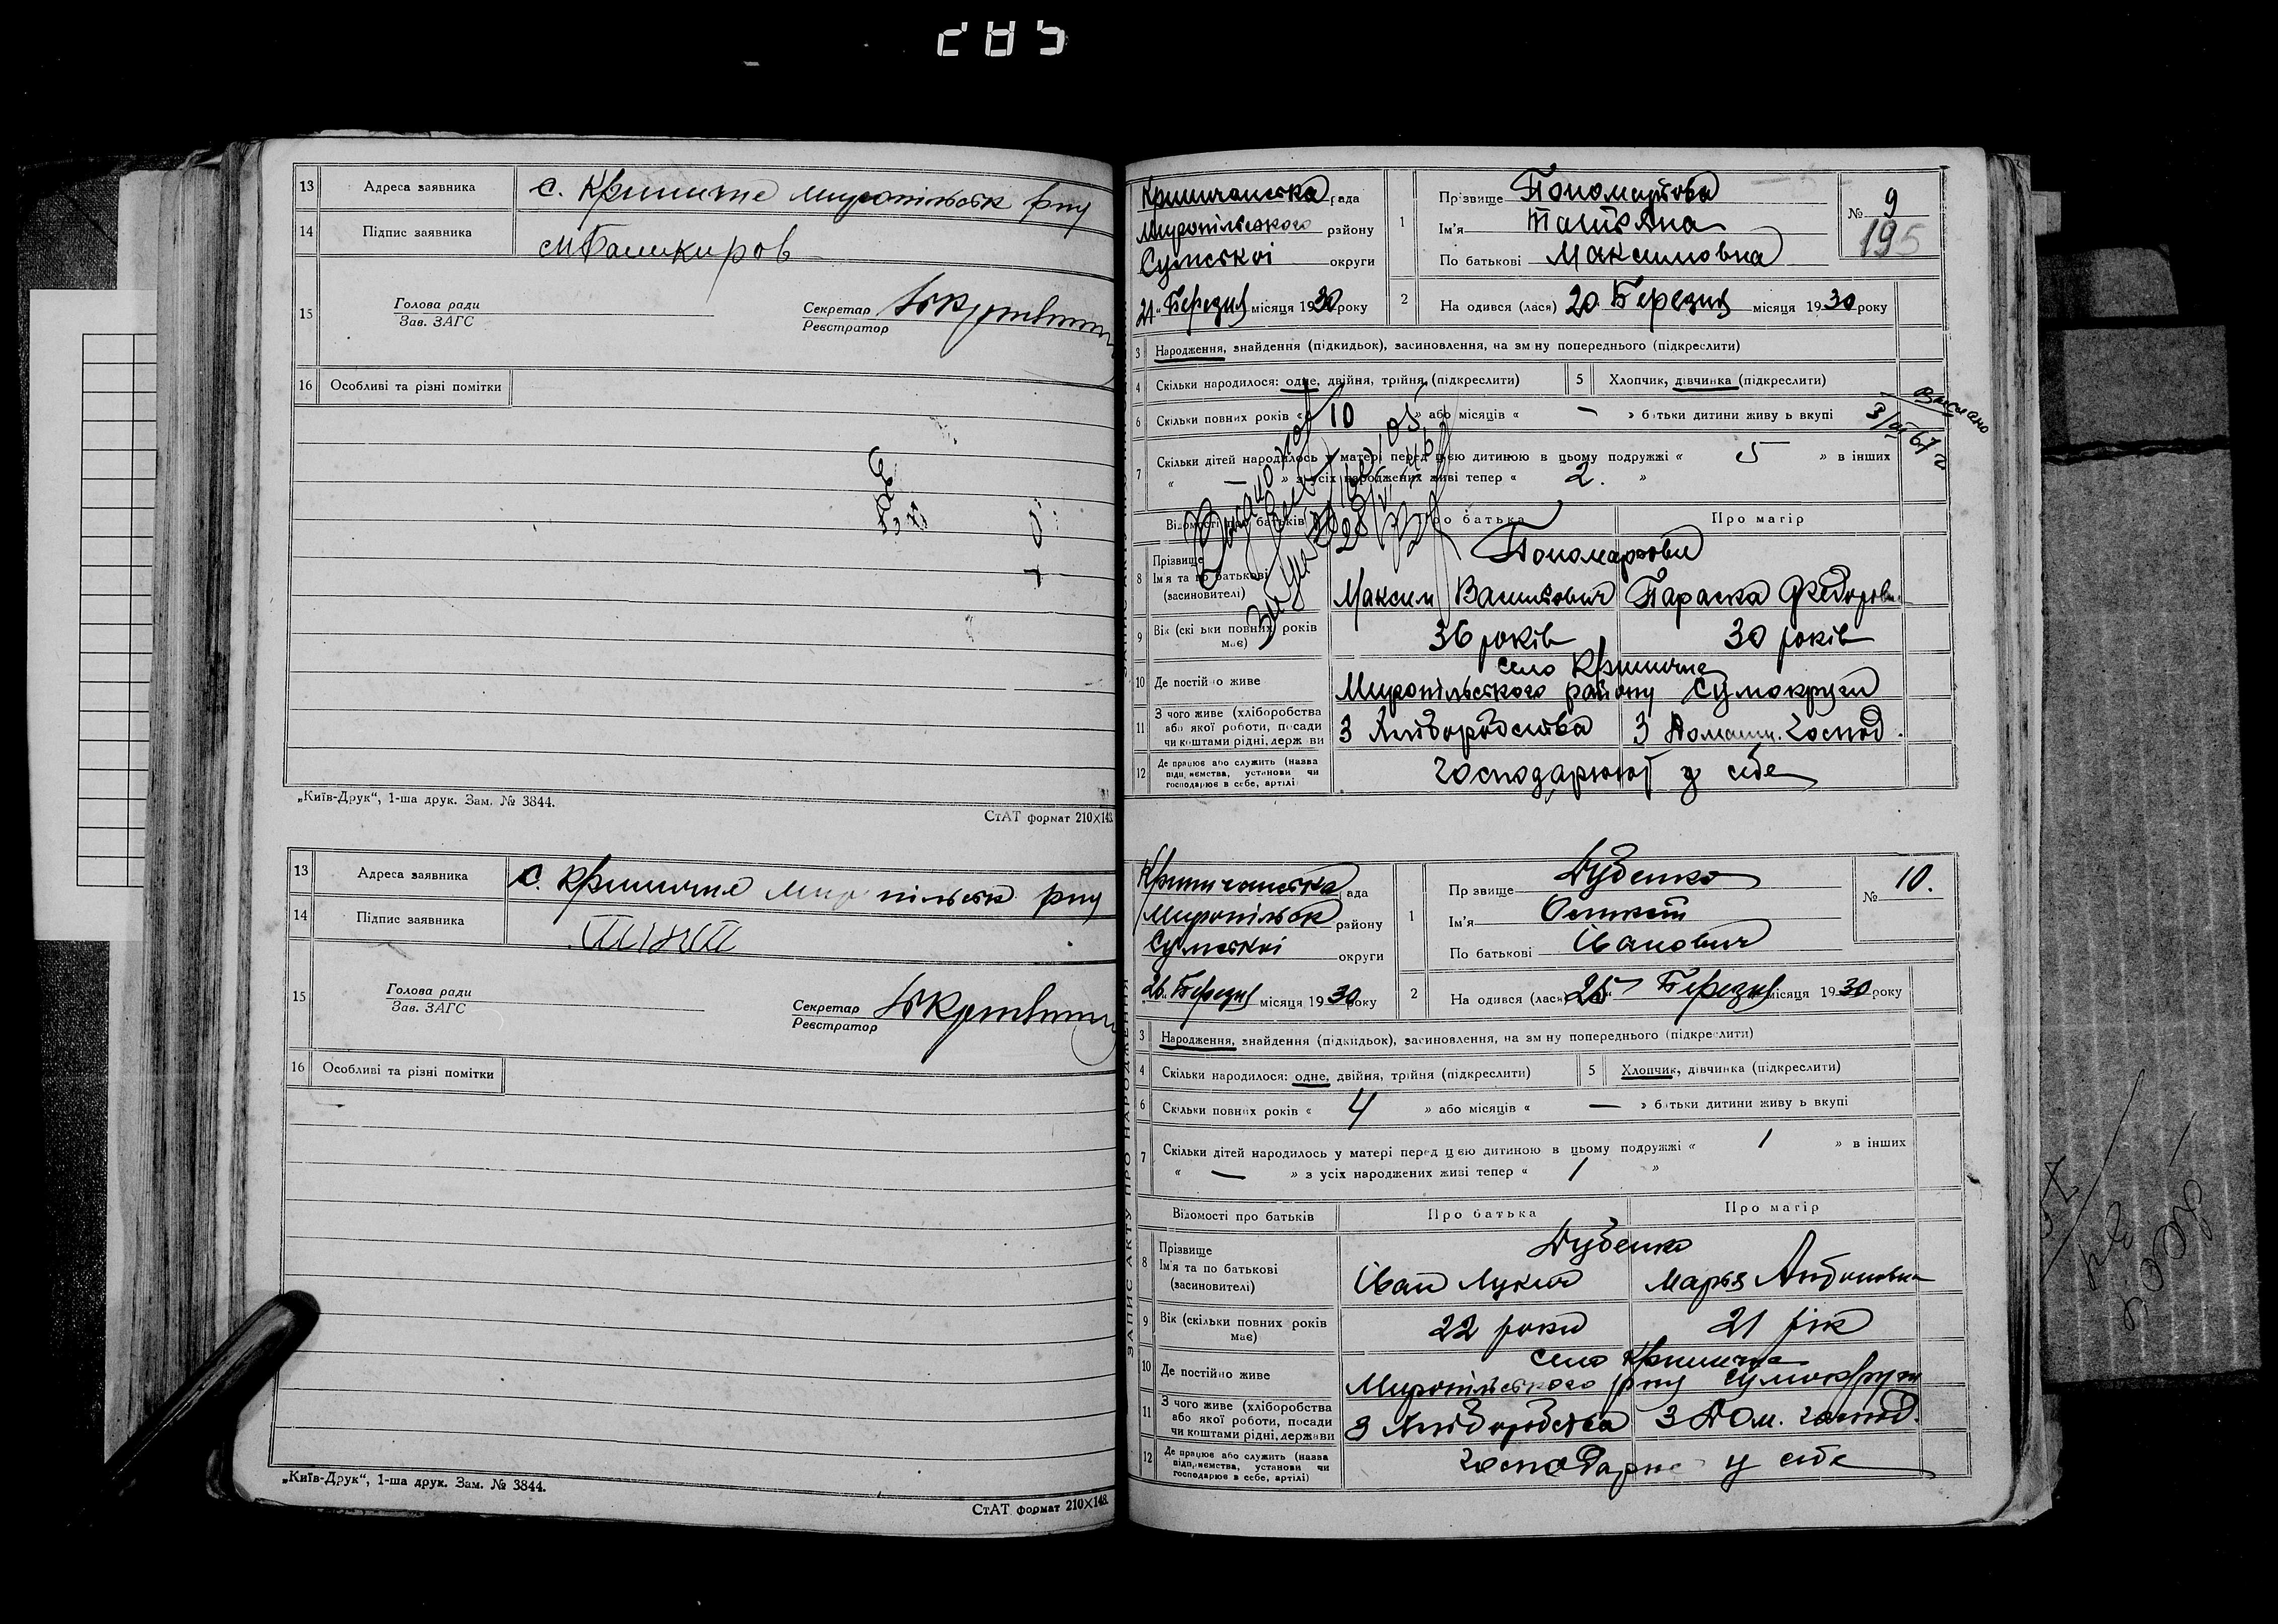 285
13 Адреса заявника с. Криничне Миропільськ рну
14 Підпис заявника МБашкиров
15 Голова ради
Зав. ЗАГС
Секретар
Реєстратор
16 Особливі та різні помітки
„Київ-Друк“, 1-ша друк. Зам. № 3844.
СтАТ формат 210×148.
13 Адреса заявника с. Криничне Миропільськ рну
14 Підпис заявника
15 Голова ради
Зав. ЗАГС
Секретар
Реєстратор
16 Особливі та різні помітки
„Київ-Друк“, 1-ша друк. Зам. № 3844.
СтАТ формат 210×148.
ЗАПИС АКТУ ПРО НАРОДЖЕННЯ
Криничанська рада
Миропільського району
Сумської округи
21 Березня місяця 1930 року
1 Прізвище Пономарьова
Ім'я Татьяна
По батькові Максимовна
№ 9
195
2 Народився (лася) 20 Березня місяця 1930 року
3 Народження, знайдення (підкидьок), засиновлення, на зміну попереднього (підкреслити)
4 Скільки народилося: одне, двійня, трійня (підкреслити) 5 Хлопчик, дівчинка (підкреслити)
6 Скільки повних років « 10 » або місяців « — » батьки дитини живуть вкупі
Выслано
3/III 67 г
7 Скільки дітей народилось у матері перед цією дитиною в цьому подружжі « 5 » в інших
« » з усіх народжених живі тепер « 2. »
Відомості про батьків Про батька Про матір
8 Прізвище Пономарьови
Ім'я та по батькові
(засиновителі) Максим Васильович Параска Федоровн.
9 Вік (скільки повних років має) 36 років 30 років
10 Де постійно живе село Криничне
Миропільського району Сумокруги
11 З чого живе (хліборобства
або якої роботи, посади
чи коштами рідні, держави
З хліборобства З домашн. господ.
12 Де працює або служить (назва
підприємства, установи чи
господарює в себе, артілі
господарюют у себе
Криничанська рада
Миропільск району
Сумської округи
26 Березня місяця 1930 року
1 Прізвище Дубенко
Ім'я
По батькові Іванович
№ 10.
2 Народився (лася) 25 Березня місяця 1930 року
3 Народження, знайдення (підкидьок), засиновлення, на зміну попереднього (підкреслити)
4 Скільки народилося: одне, двійня, трійня (підкреслити) 5 Хлопчик, дівчинка (підкреслити)
6 Скільки повних років « 4 » або місяців « — » батьки дитини живуть вкупі
7 Скільки дітей народилось у матері перед цією дитиною в цьому подружжі « 1 » в інших
« — » з усіх народжених живі тепер « 1 »
Відомості про батьків Про батька Про матір
8 Прізвище Дубенко
Ім'я та по батькові
(засиновителі) Іван Лукич Марья Антоновна
9 Вік (скільки повних років має) 22 роки 21 рік
10 Де постійно живе село Криничне
Миропільського рну Сумокруги
11 З чого живе (хліборобства
або якої роботи, посади
чи коштами рідні, держави
З хліборобства З дом. господ.
12 Де працює або служить (назва
підприємства, установи чи
господарює в себе, артілі)
господарює у себе